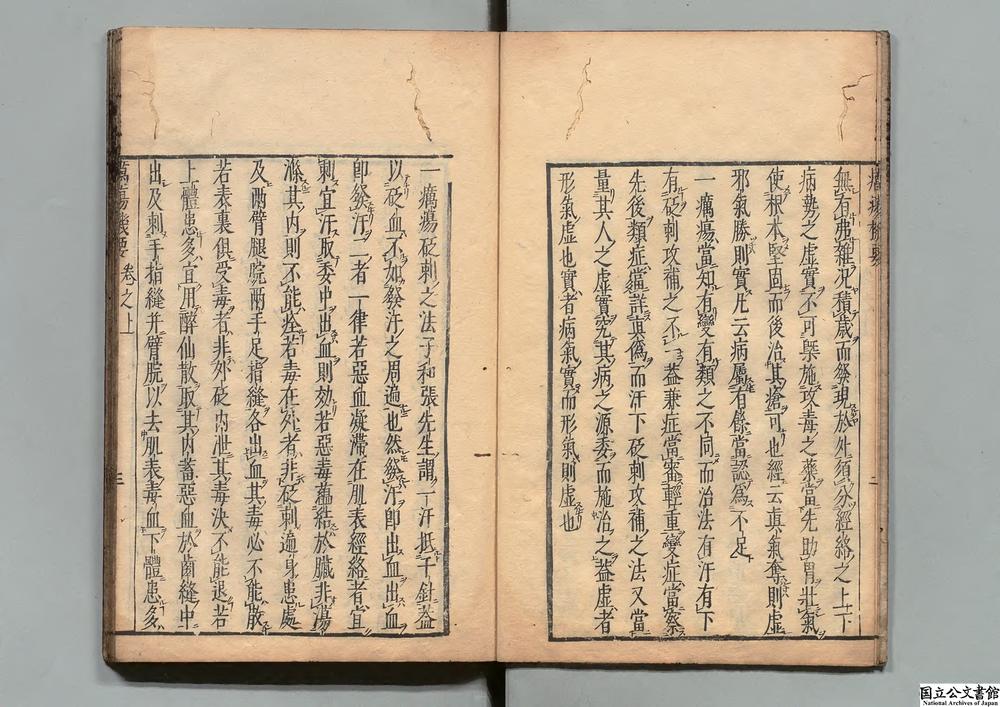 癘瘍機要 二
無有弗雜況積歲而發現於外須分經絡之上下
病勢之虛實不可槩施攻毒之藥當先助胃壯氣
使根本堅固而後治其瘡可也經云真氣奪則虛
邪氣勝則實凡云病屬有餘當認為不足
一癘瘍當知有變有類之不同而治法有汗有下
有砭刺攻補之不一葢兼症當審輕重變症當察
先後類症當詳真偽而汗下砭刺攻補之法又當
量其人之虛實究其病之源委而施治之葢虛者
形氣虛也實者病氣實而形氣則虛也
一癘瘍砭刺之法子和張先生謂一汗抵千針葢
以砭血不如發汗之周遍也然發汗卽出血出血
卽發汗二者一律若惡血凝滯在肌表經絡者宜
刺宜汗取委中出血則効若惡毒蘊結於臟非湯
滌其內則不能痊若毒在外者非砭刺遍身患處
及兩臂腿腕兩手足指縫各出血其毒必不能散
若表裏俱受毒者非外砭內泄其毒決不能退若
上體患多宜用醉仙散取其內蓄惡血於齒縫中
出及刺手指縫并臂腕以去肌表毒血下體患多
癘瘍機要 卷之上 三
国立公文書館
National Archives of Japan